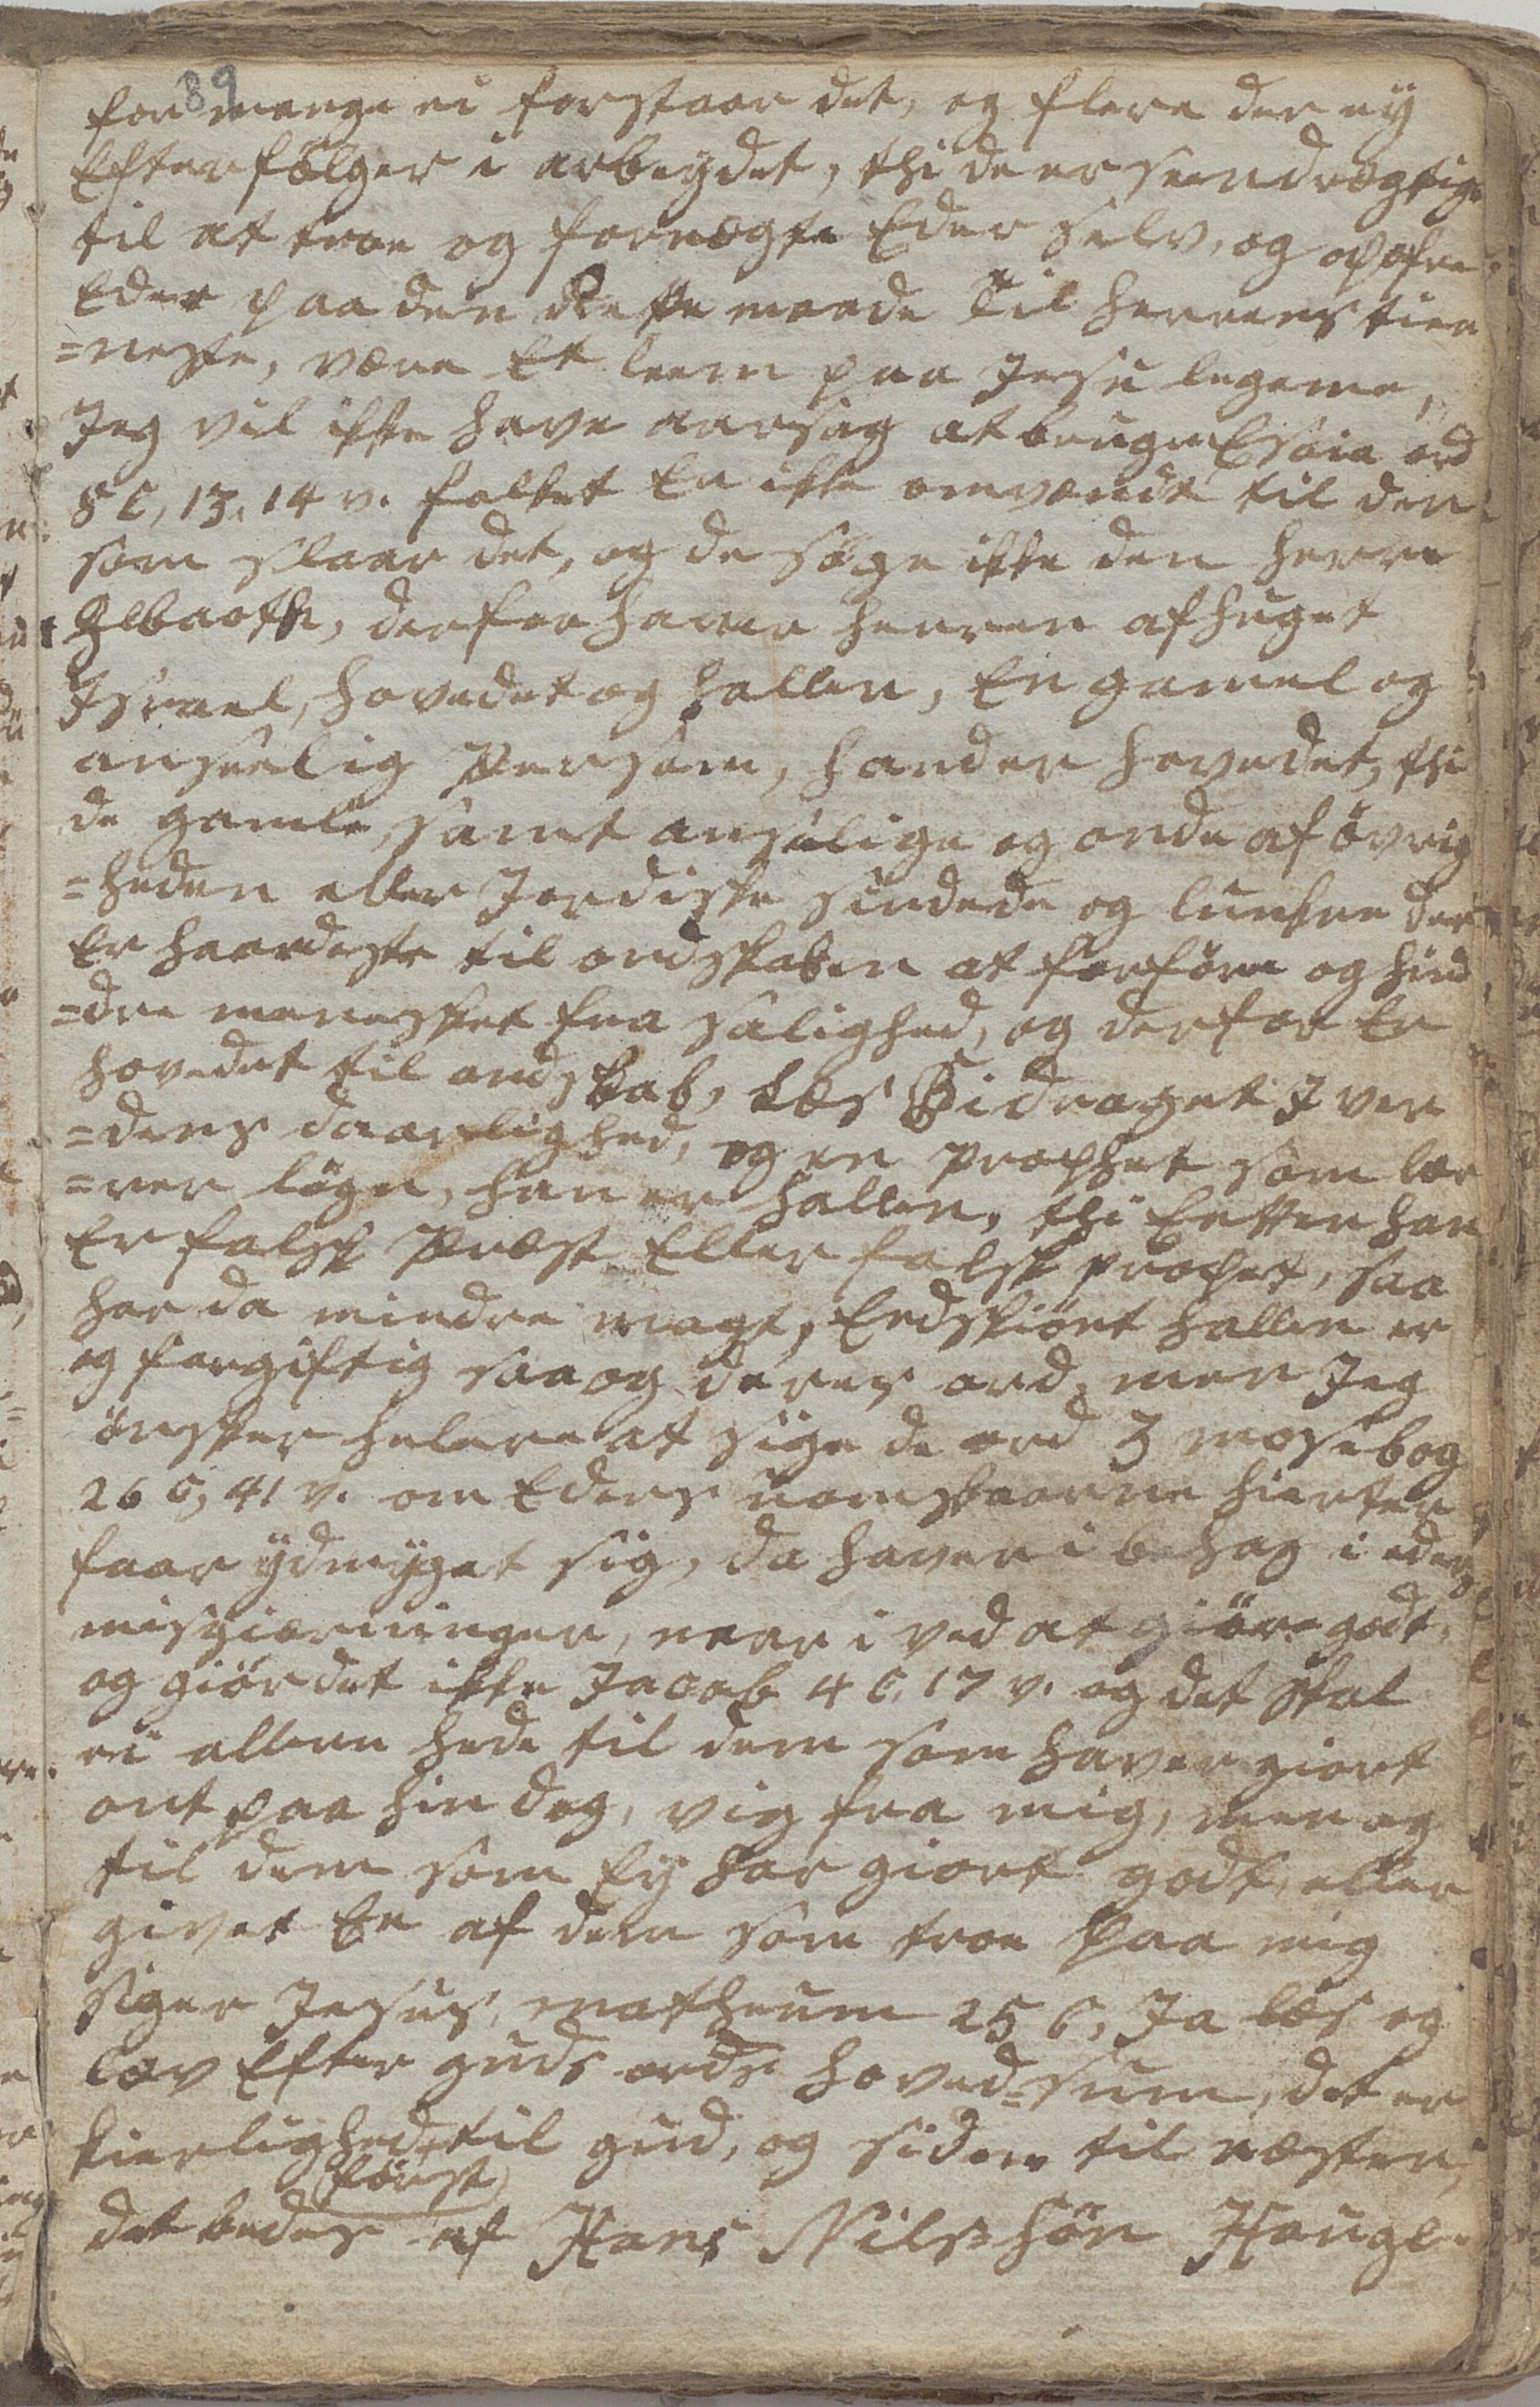 89
for mange ei forstaar det, og flere der ey
Efterfølger i arbeydet, thi de er seendrægtige
til at troe og fornægte Eder selv, og opofre
Eder paa den Rette maade til herrens tiee
=neste, være Et leem paa Jesu legeme,
Jeg vil ikke have aarsag at bruge Esaia ord
8 C, 13, 14 v. folket Er ikke omvendt til den
som slaar det, og de søge ikke den herre
Zebaoth, derfor haver herren afhuget
Israel, hovedet og hallen, En gamel og
anseelig Person, hander hovedet, thi
de gamle, samt anselige og onde af øvrig
=heden eller Jordiske sindede og lunkne der
Er haardeste til ondskaben at forføre og hind
=dre menesket fra salighed, og derfor Er
hovedet til ondskab, læs Bidraget I ver
=dens daarlighed, og en prophet som læ
=rer løgn, han er hallen, thi Enten han
Er falsk Præst Eller falsk prophet, saa
har da mindre magt, Endskiønt hallen er
og forgiftig saa og deres ord, men Jeg
ønsker helere at sige de ord 3 mosebog
26 C, 41 v. om Eders uomskaarne hierter
faar ydmyget sig, da haver i behag i eders
misgierninger, naar i ved at giøre godt,
og giør det ikke Jacob 4 C, 17 v. og det skal
ei allene hede til dem som haver giort
ont paa hin dag, vig fra mig, men og
til dem som Ey har giort godt, eller
givet En af dem som troe paa mig
siger Jesus, matheum 25 C, Ja læs og
lev Efter guds ords hoved=sum, det er
kierlighed til gud, og siden til næsten,
først
det bedes af Hans Nilsøn Hauge